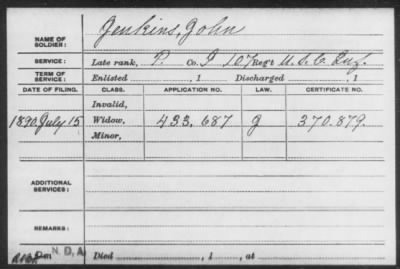 NAME OF SOLDIER: Jenkins, John
SERVICE: Late rank, P. Co. I 107 Reg't U.S.C. Inf.
TERM OF SERVICE: Enlisted , 1 Discharged , 1
DATE OF FILING. CLASS. APPLICATION NO. LAW. CERTIFICATE NO.
Invalid,
1890 July 15 Widow, 433.687 G 370.879.
Minor,
ADDITIONAL SERVICES:
REMARKS:
N.D.A.
Died , 1 , at